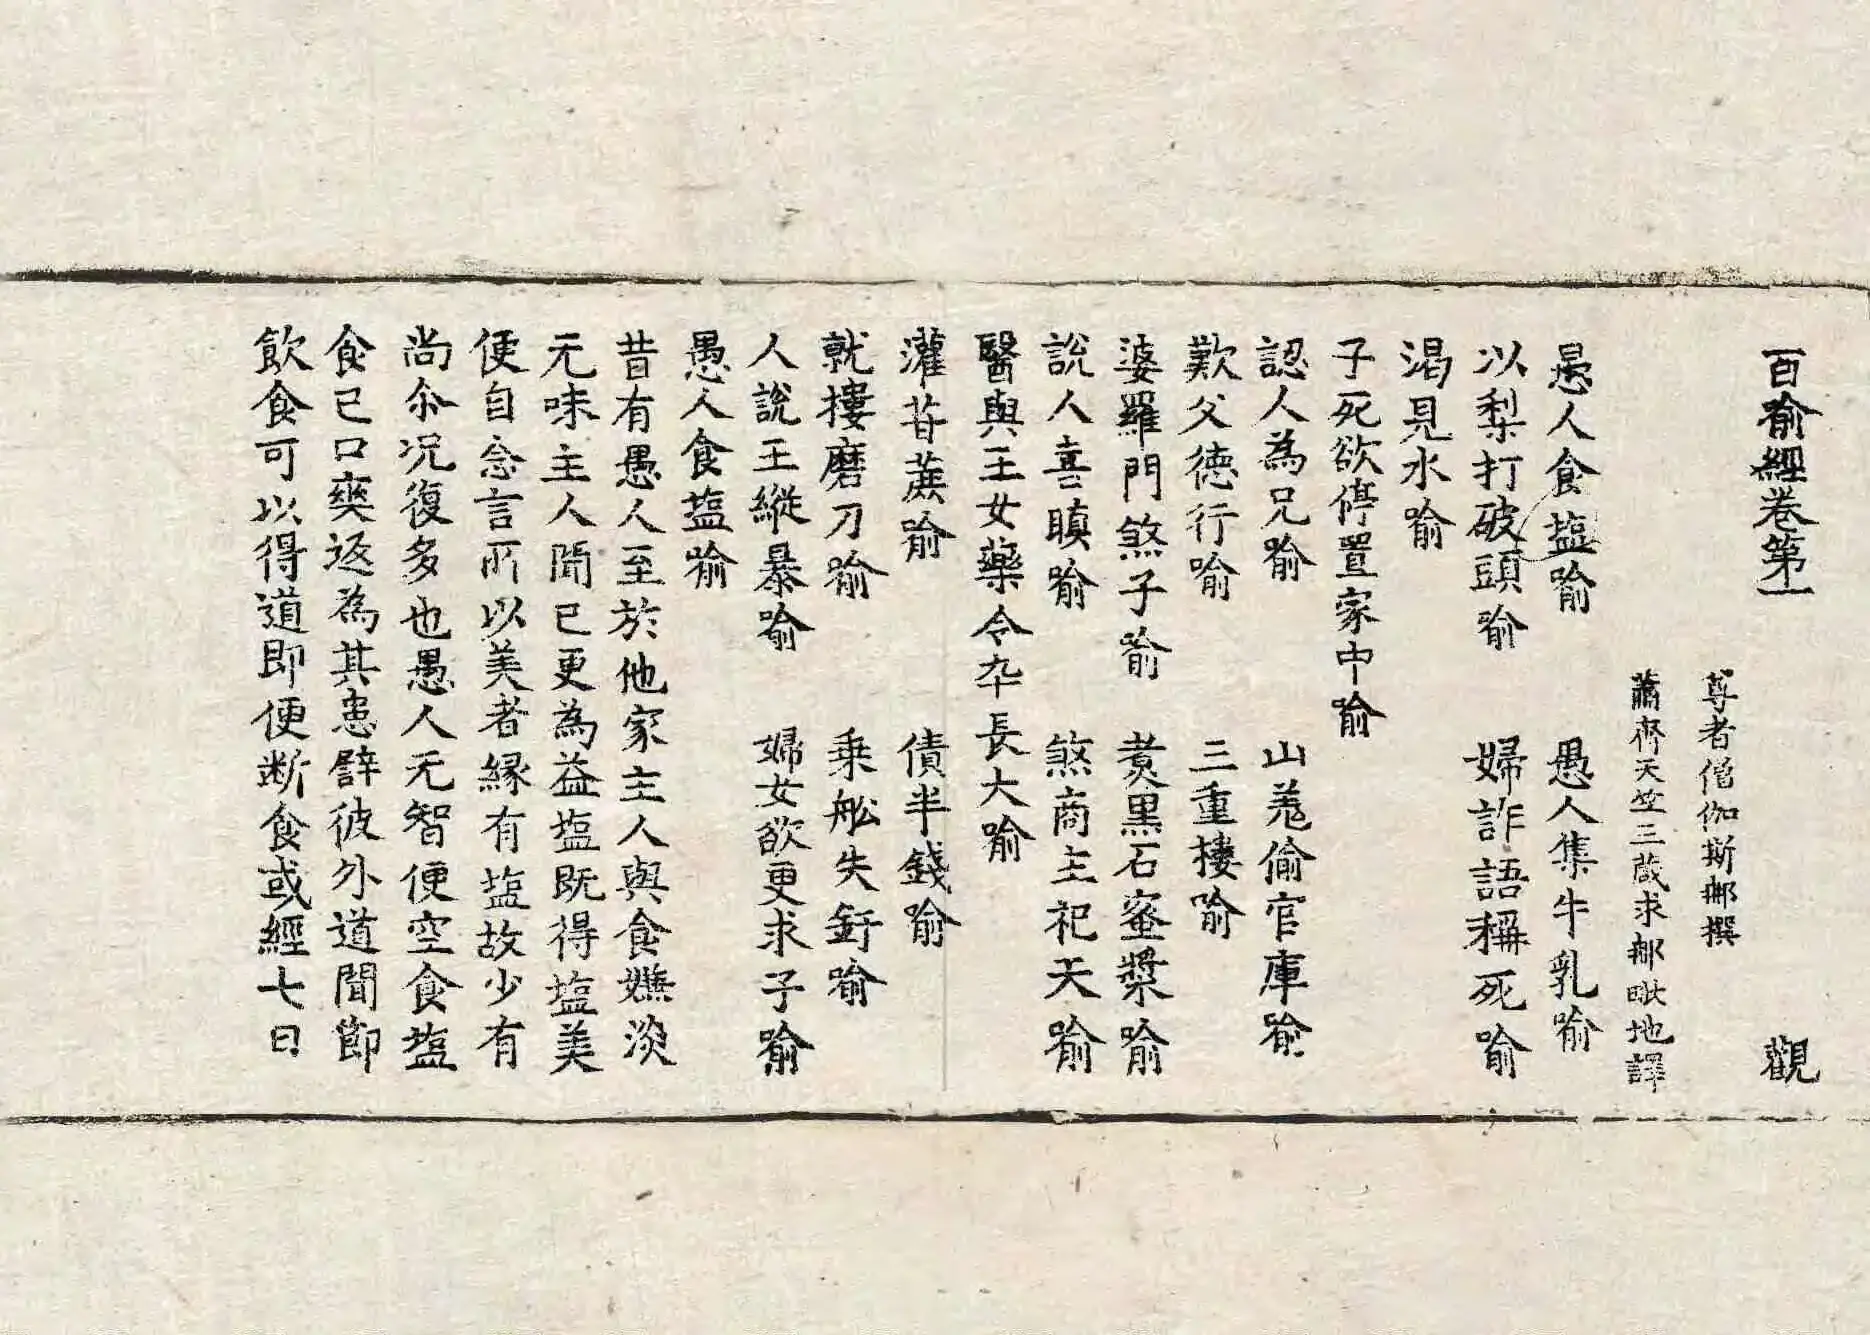 百喻經卷第一 觀
尊者僧伽斯那撰
蕭齊天竺三藏求那毗地譯
愚人食塩喻 愚人集牛乳喻
以梨打破頭喻 婦詐語稱死喻
渴見水喻
子死欲停置家中喻
認人為兄喻 山羌偷官庫喻
歎父徳行喻 三重樓喻
婆羅門煞子喻 煑黒石蜜漿喻
說人喜瞋喻 煞商主祀天喻
醫與王女藥令卒長大喻
灌甘蔗喻 債半錢喻
就樓磨刀喻 乗舩失釪喻
人說王縱暴喻 婦女欲更求子喻
愚人食塩喻
昔有愚人至於他家主人與食嫌淡
无味主人聞已更為益塩既得塩美
便自念言所以美者縁有塩故少有
尚尒况復多也愚人无智便空食塩
食已口爽返為其患譬彼外道聞節
飲食可以得道即便断食或經七日